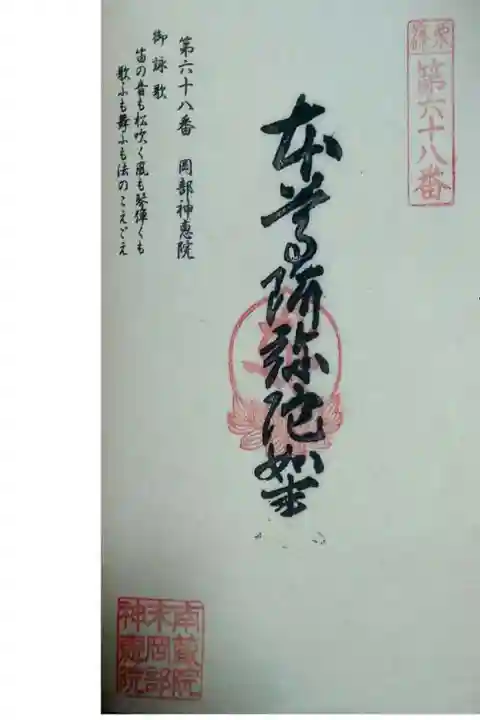 篠栗
第六十八番
本尊阿弥陀如来
第六十八番 岡部神恵院
御詠歌
笛の音も松吹く風も琴弾くも
歌ふも舞ふも法のこえごえ
南蔵院
末岡部
神恵院